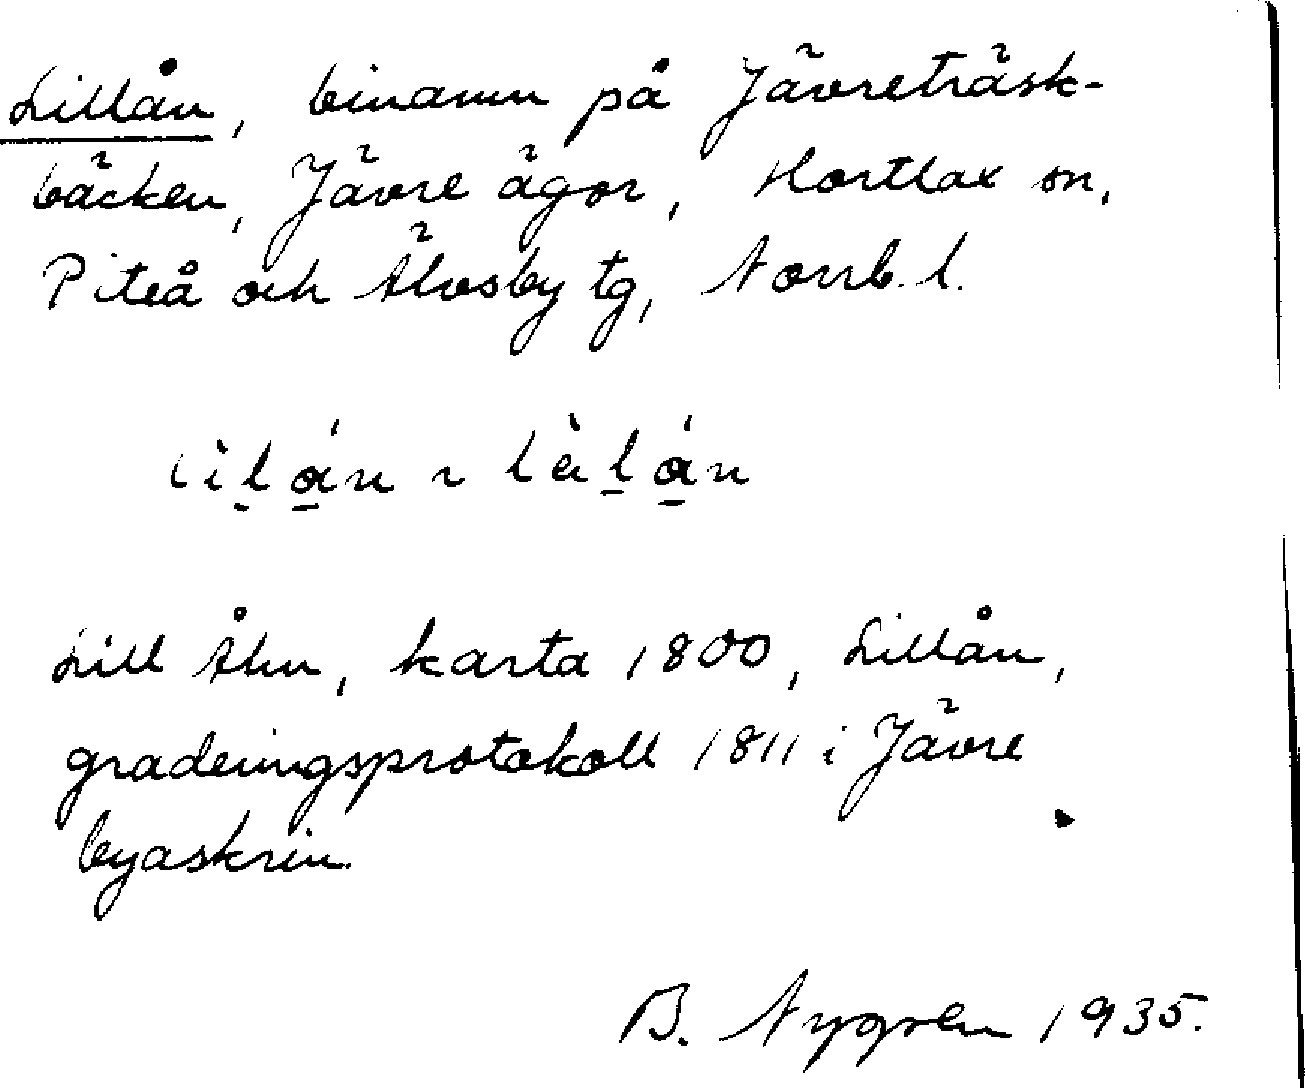 Lillån, binamn på Jävreträsk-
bäcken, Jävre ägor, Hortlax sn,
Piteå och Älvsby tg, Norrb. l.
Lill Åhn, karta 1800, Lillån,
graderingsprotokoll 1811 i Jävre
byaskrin.
B. Nygren 1935.